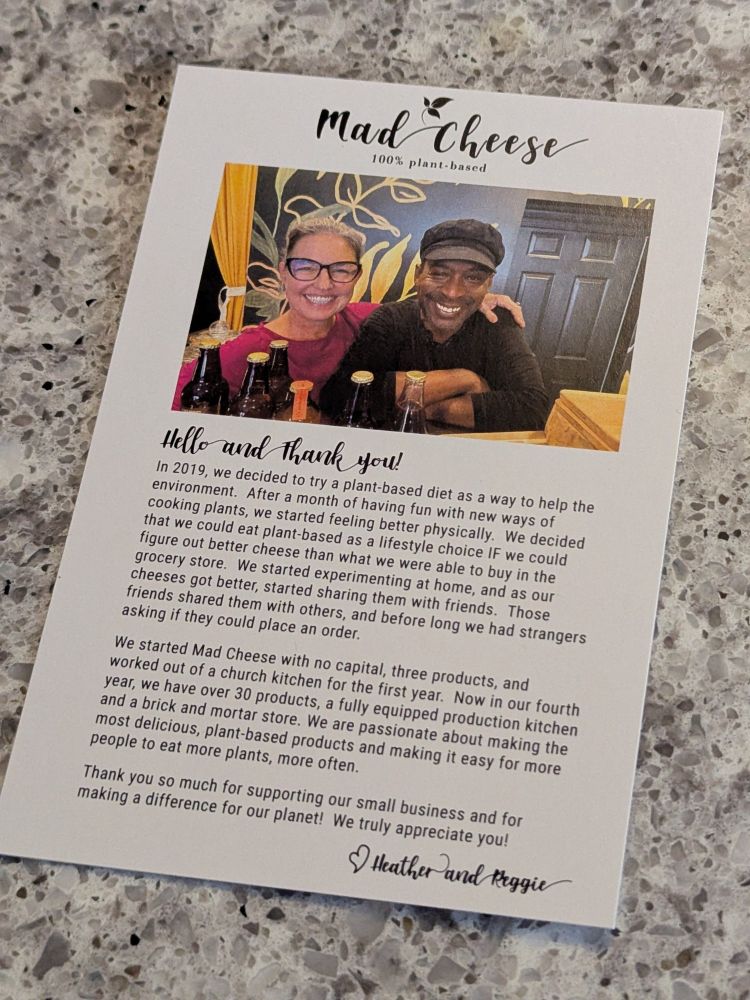 Mad Cheese
100% plant-based
Hello and Thank you!
In 2019, we decided to try a plant-based diet as a way to help the
environment. After a month of having fun with new ways of
cooking plants, we started feeling better physically. We decided
that we could eat plant-based as a lifestyle choice IF we could
figure out better cheese than what we were able to buy in the
grocery store. We started experimenting at home, and as our
cheeses got better, started sharing them with friends. Those
friends shared them with others, and before long we had strangers
asking if they could place an order.
We started Mad Cheese with no capital, three products, and
worked out of a church kitchen for the first year. Now in our fourth
year, we have over 30 products, a fully equipped production kitchen
and a brick and mortar store. We are passionate about making the
most delicious, plant-based products and making it easy for more
people to eat more plants, more often.
Thank you so much for supporting our small business and for
making a difference for our planet! We truly appreciate you!
Heather and Reggie